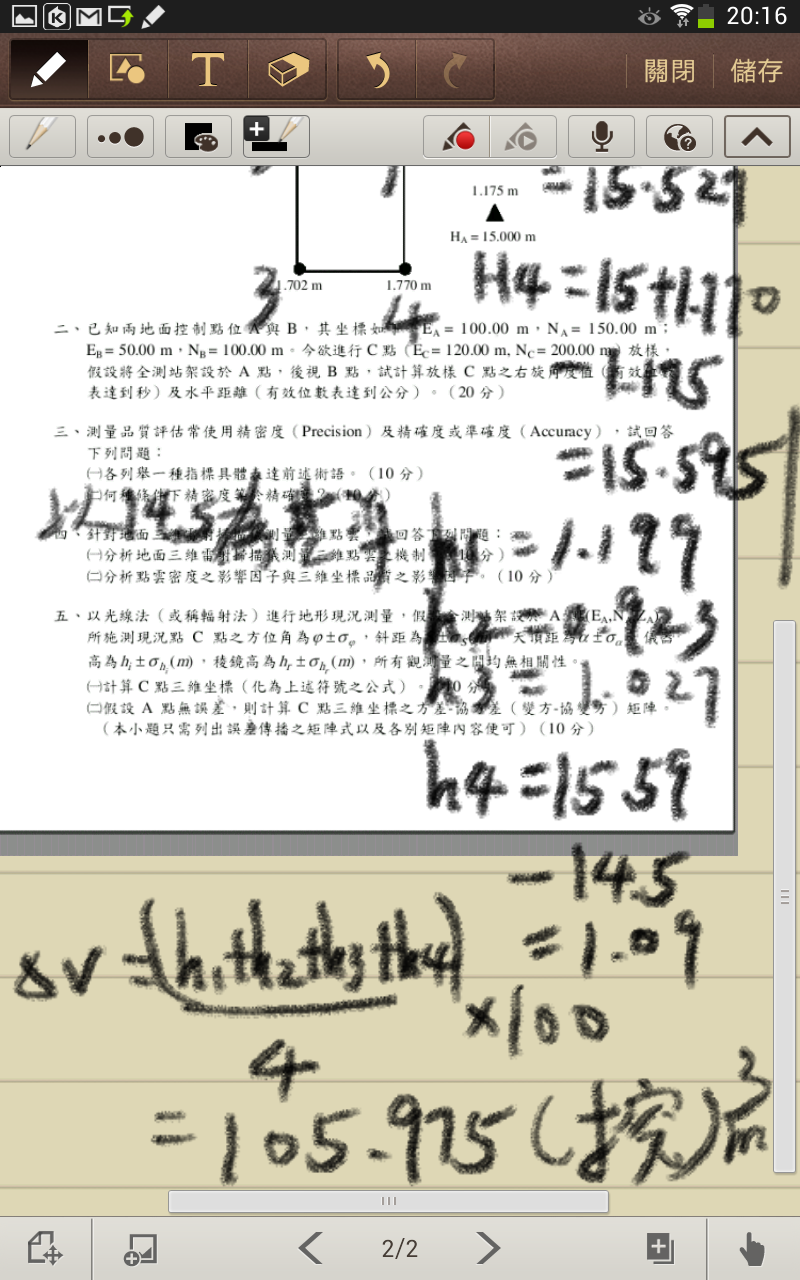 20:16
關閉 儲存
=15.527
1.175 m
H_A = 15.000 m
1.702 m 1.770 m
3 4
H4=15+1.770
二、已知兩地面控制點位 A 與 B,其坐標如 E_A = 100.00 m,N_A = 150.00 m;
E_B = 50.00 m,N_B = 100.00 m。今欲進行 C 點(E_C = 120.00 m, N_C = 200.00 m)放樣,
假設將全測站架設於 A 點,後視 B 點,試計算放樣 C 點之右旋角度值(有效位
表達到秒)及水平距離(有效位數表達到公分)。(20 分)
-1.175
三、測量品質評估常使用精密度(Precision)及精確度或準確度(Accuracy),試回答
下列問題:
㈠各列舉一種指標具體表達前述術語。(10 分)
㈡何種條件下精密度等於精確度?(10 分)
=15.595
以14.5為基準
四、針對地面三維雷射掃描儀測量三維點雲,試回答下列問題:
㈠分析地面三維雷射掃描儀測量三維點雲之機制。(10 分)
㈡分析點雲密度之影響因子與三維坐標品質之影響因子。(10 分)
=1.199
五、以光線法(或稱輻射法)進行地形現況測量,假設全測站架設於 A 點(E_A,N_A,Z_A),
所施測現況點 C 點之方位角為φ±σ_φ,斜距為 天頂距為α±σ_α,儀器
高為h_i±σ_hi(m),稜鏡高為h_r±σ_hr(m),所有觀測量之間均無相關性。
㈠計算 C 點三維坐標(化為上述符號之公式)。(10 分)
㈡假設 A 點無誤差,則計算 C 點三維坐標之方差-協方差(變方-協變方)矩陣。
(本小題只需列出誤差傳播之矩陣式以及各別矩陣內容便可)(10 分)
h3=1.027
h4=15.59
-14.5
=1.09
ΔV=(h1+h2+h3+h4)
×100
4
=105.975(挖)m³
2/2